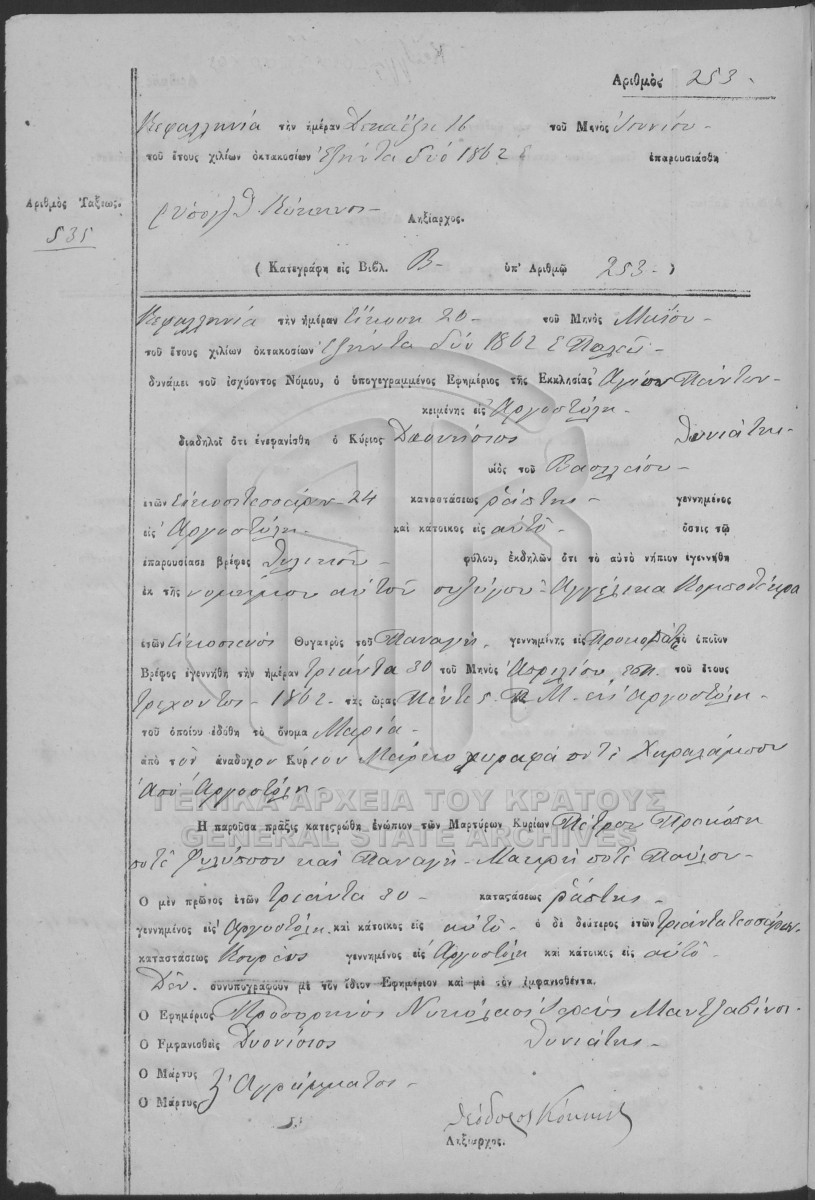 Ἀριθμὸς 253.
Κεφαλληνία τὴν ἡμέραν Δεκαέξη 16 τοῦ Μηνὸς Ἰουνίου
τοῦ ἔτους χιλίων ὀκτακοσίων ἑξήντα δύο 1862 ἐπαρουσιάσθη
Ἀριθμὸς Τάξεως.
535
Ληξίαρχος.
( Κατεγράφη εἰς Βιβλ. Β ὑπ' Ἀριθμῶ 253 )
Κεφαλληνία τὴν ἡμέραν εἴκοση 20 τοῦ Μηνὸς Μαΐου
τοῦ ἔτους χιλίων ὀκτακοσίων ἑξήντα δύο 1862
δυνάμει τοῦ ἰσχύοντος Νόμου, ὁ ὑπογεγραμμένος Ἐφημέριος τῆς Ἐκκλησίας Ἁγίων Πάντων
κειμένης εἰς Ἀργοστόλη
διαδηλοῖ ὅτι ἐνεφανίσθη ὁ Κύριος Διονήσιος Θυνιάτης
υἱὸς τοῦ Βασιλείου
ἐτῶν εἰκοσιτεσσάρων 24 καταστάσεως ῥάπτης γεννημένος
εἰς Ἀργοστόλη καὶ κάτοικος εἰς αὐτὸ ὅστις τῷ
ἐπαρουσίασε βρέφος θηλικοῦ φύλου, ἐκδηλῶν ὅτι τὸ αὐτὸ νήπιον ἐγεννήθη
ἐκ τῆς νομίμου αὐτοῦ συζύγου Ἀγγέλικα Κομποθέκρα
ἐτῶν εἰκοσιενὸς Θυγατρὸς τοῦ Παναγῆ γεννημένης εἰς ὁποῖον
Βρέφος ἐγεννήθη τὴν ἡμέραν τριάντα 30 τοῦ Μηνὸς Ἀπριλίου τοῦ ἔτους
τρέχοντος 1862 τὰς ὥρας Πέντε 5 Π. Μ. εἰς Ἀργοστόλη
τοῦ ὁποίου ἐδόθη τὸ ὄνομα Μαρία
ἀπὸ τὸν ἀνάδοχον Κύριον Μάρκο ποτὲ Χαραλάμπου
ἀπὸ Ἀργοστόλη
ΓΕΝΙΚΑ ΑΡΧΕΙΑ ΤΟΥ ΚΡΑΤΟΥΣ
GENERAL STATE ARCHIVES
Ἡ παροῦσα πρᾶξις κατεστρώθη ἐνώπιον τῶν Μαρτύρων Κυρίων Πέτρου Προκόπη
ποτὲ Φιλίππου καὶ Παναγῆ Μακρῆ ποτὲ Παύλου
Ὁ μὲν πρῶτος ἐτῶν τριάντα 30 καταστάσεως ῥάπτης
γεννημένος εἰς Ἀργοστόλη καὶ κάτοικος εἰς αὐτὸ ὁ δὲ δεύτερος ἐτῶν τριάντα τεσσάρων
καταστάσεως Κουρεὺς γεννημένος εἰς Ἀργοστόλη καὶ κάτοικος εἰς αὐτὸ
Δὲν συνυπογράφουν μὲ τὸν ἴδιον Ἐφημέριον καὶ μὲ τὸν ἐμφανισθέντα.
Ὁ Ἐφημέριος Προσωρηνὸς Νικόλαος Ἱερεὺς Μαντζαβίνος
Ὁ Ἐμφανισθεὶς Διονίσιος Θυνιάτης
Ὁ Μάρτυς
Ὁ Μάρτυς Ἀγράμματος
Θεόδωρος
Ληξίαρχος.